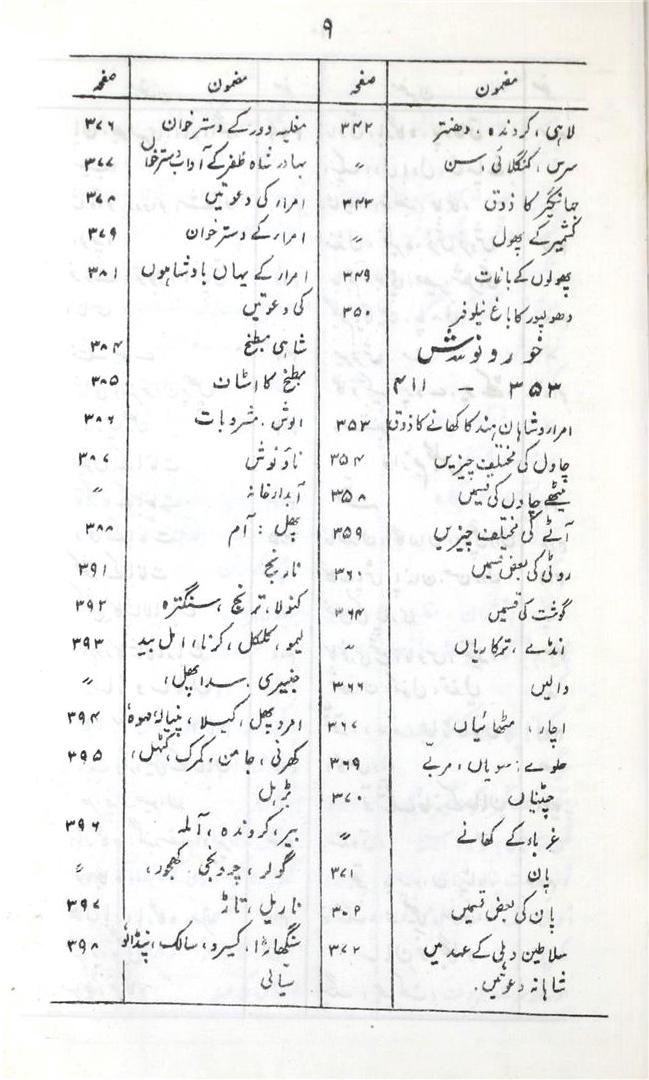 ۹
مضمون صفحہ
لاہی، کروندہ، دھنتر ۳۴۲
سرس، کنگلائی، سن ״
جہانگیر کا ذوق ۳۴۳
کشمیر کے پھول ״
پھولوں کے باغات ۳۴۹
دھولپور کا باغ نیلوفر ۳۵۰
خورونوش
۳۵۳ – ۴۱۱
امراء و شاہان ہند کا کھانے کا ذوق ۳۵۳
چاول کی مختلف چیزیں ۳۵۴
میٹھے چاول کی قسمیں ۳۵۸
آٹے کی مختلف چیزیں ۳۵۹
روٹی کی بعض قسمیں ۳۶۰
گوشت کی قسمیں ۳۶۴
انڈے، ترکاریاں ״
دالیں ۳۶۶
اچار، مٹھائیاں ۳۶۷
حلوے، سویاں، مربے ۳۶۹
چٹنیاں ۳۷۰
غرباء کے کھانے ״
پان ۳۷۱
پان کی بعض قسمیں ۳۰۲
سلاطین دہلی کے عہد میں ۳۷۲
شاہانہ دعوتیں۔
مضمون صفحہ
مغلیہ دور کے دسترخوان ۳۷۶
بہادر شاہ ظفر کے آداب دسترخوان ۳۷۷
امراء کی دعوتیں ۳۷۸
امراء کے دسترخوان ۳۷۹
امراء کے یہاں بادشاہوں ۳۸۱
کی دعوتیں
شاہی مطبخ ۳۸۴
مطبخ کا اسٹاف ۳۸۵
الوش۔ مشروبات ۳۸۶
ناؤنوش ۳۸۷
آبدارخانہ ״
پھل: آم ۳۸۸
نارنج ۳۹۱
کنولا، ترنج، سنگترہ ۳۹۲
لیمو، کلکل، کرنا، امل بید ۳۹۳
جنبیری۔ سدا پھل، ״
امرد پھل، کیلا، پنیالہ، مہوہ ۳۹۴
کھرنی، جامن، کمرک، کٹہل، ۳۹۵
بڑہل
بیر، کروندہ، آملہ ۳۹۶
گولر، چرونجی، کھجور، ״
ناریل، تاڑ ۳۹۷
سنگھاڑا، کسیرو، سالک، پنڈالو ۳۹۸
سیالی